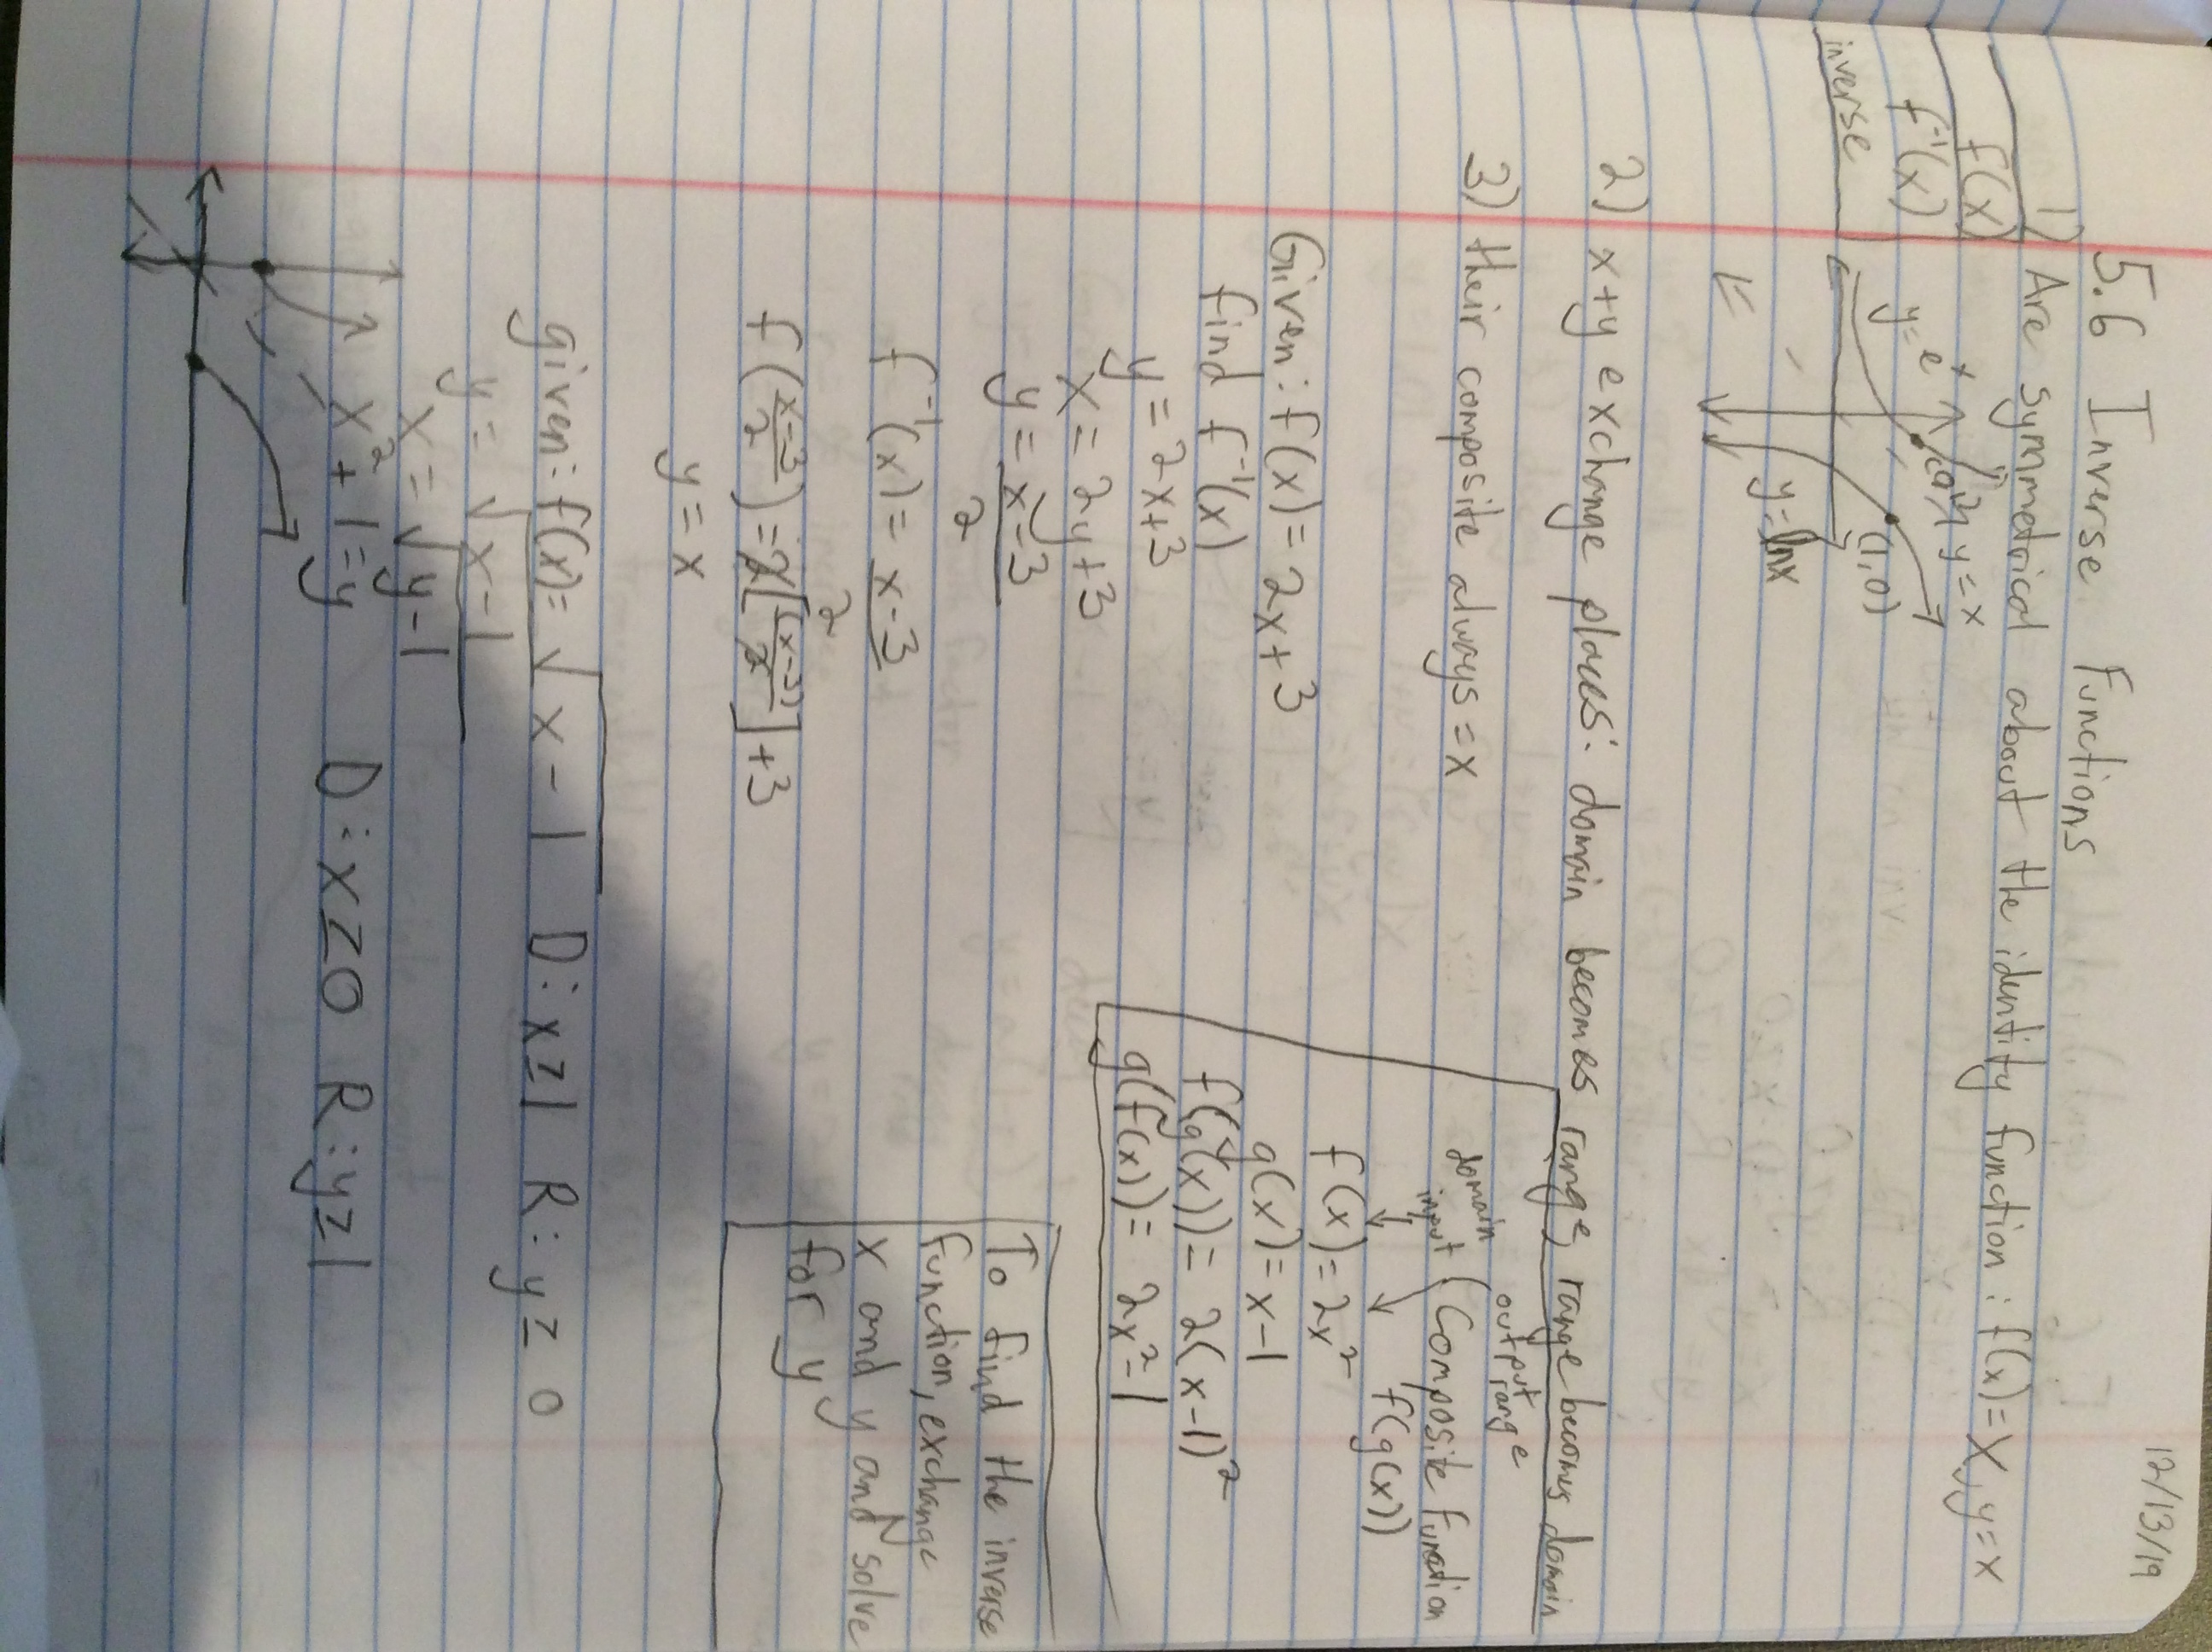 12/13/19
5.6 Inverse Functions
1) Are symmetrical about the identity function: f(x)=x, y=x
f(x)
f⁻¹(x)
inverse
y=eˣ
y=x
(1,0)
y=lnx
2) x+y exchange places: domain becomes range, range becomes domain
3) their composite always = x
output
range
domain
input
Composite Function
f(g(x))
f(x)=2x²
g(x)=x-1
f(g(x))= 2(x-1)²
g(f(x))= 2x²-1
Given: f(x)=2x+3
find f⁻¹(x)
y=2x+3
x=2y+3
y=(x-3)/2
f⁻¹(x)=(x-3)/2
f((x-3)/2)=2[(x-3)/2]+3
y=x
To find the inverse
function, exchange
x and y and solve
for y
given: f(x)=√(x-1) D: x≥1 R: y≥0
y=√(x-1)
x=√(y-1)
x²+1=y D: x≥0 R: y≥1